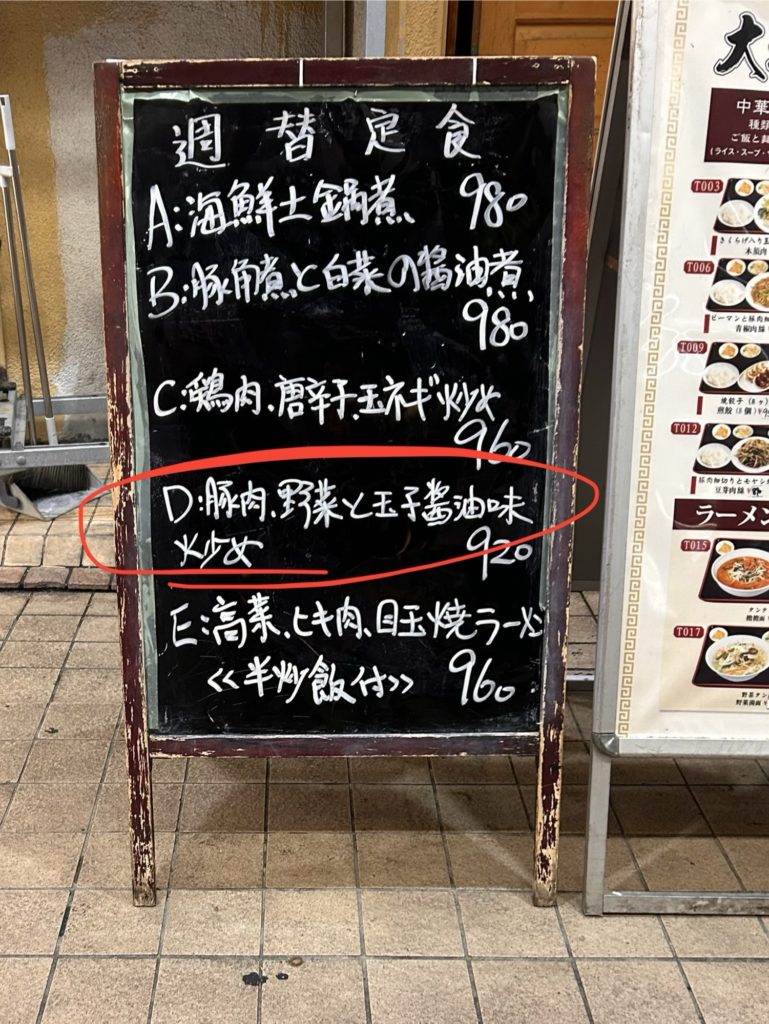 週替定食
A:海鮮土鍋煮、 980
B:豚角煮と白菜の醤油煮、
980
C:鶏肉、唐辛子、玉ネギ炒め
960
D:豚肉、野菜と玉子醤油味
炒め 920
E:高菜、ヒキ肉、目玉焼ラーメン
<<半炒飯付>> 960
大
中華
種類
ご飯と麺
(ライス・スープ・
T003
きくらげ入り玉
木須肉
T006
ピーマンと豚肉細
青椒肉絲
T009
焼餃子(8ヶ)
煎餃(8個)
T012
豚肉細切りとモヤシ
豆芽肉絲
ラーメン
T015
タンタ
T017
野菜タン
野菜湯麺